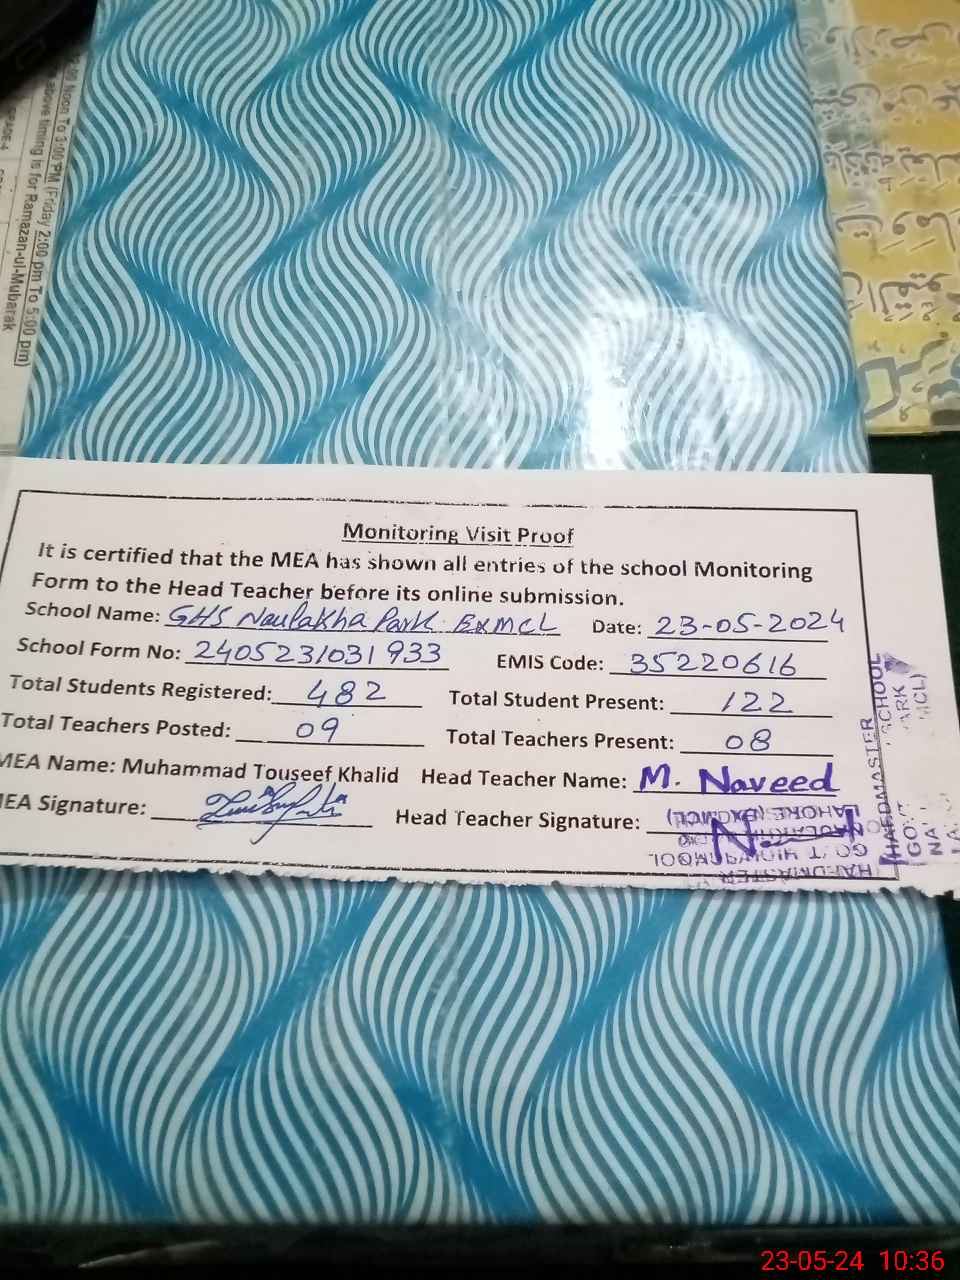 3:00 Noon To 3:00 PM (Friday 2:00 pm To 5:00 pm)
above timing is for Ramazan-ul-Mubarak
Monitoring Visit Proof
It is certified that the MEA has shown all entries of the school Monitoring
Form to the Head Teacher before its online submission.
School Name: GHS Naulakha Park EXMCL Date: 23-05-2024
School Form No: 2405231031933 EMIS Code: 35220616
Total Students Registered: 482 Total Student Present: 122
Total Teachers Posted: 09 Total Teachers Present: 08
MEA Name: Muhammad Touseef Khalid Head Teacher Name: M. Naveed
MEA Signature: Head Teacher Signature:
HEADMASTER
SCHOOL
23-05-24 10:36